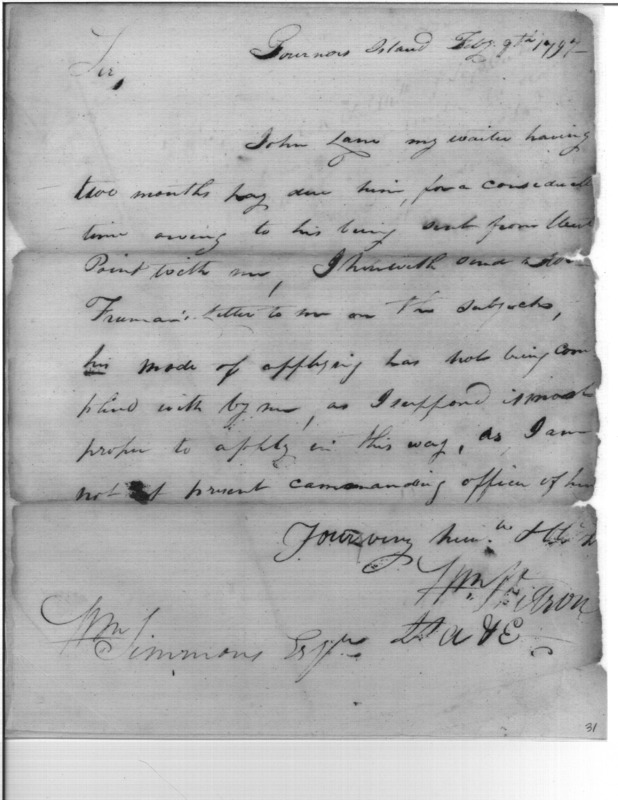 Governors Island Feby 9th 1797
Sir,
John Lane my waiter having
two months pay due him, for a
time owing to his being sent from West
Point with me, I herewith send
Freeman's Letter to me on the subject,
his mode of applying has not being com
plied with by me, as I suppose it most
proper to apply in this way, as I am
not at present commanding officer of him
Your very
Wm
Lt A & E
Wm Simmons Esqr
31